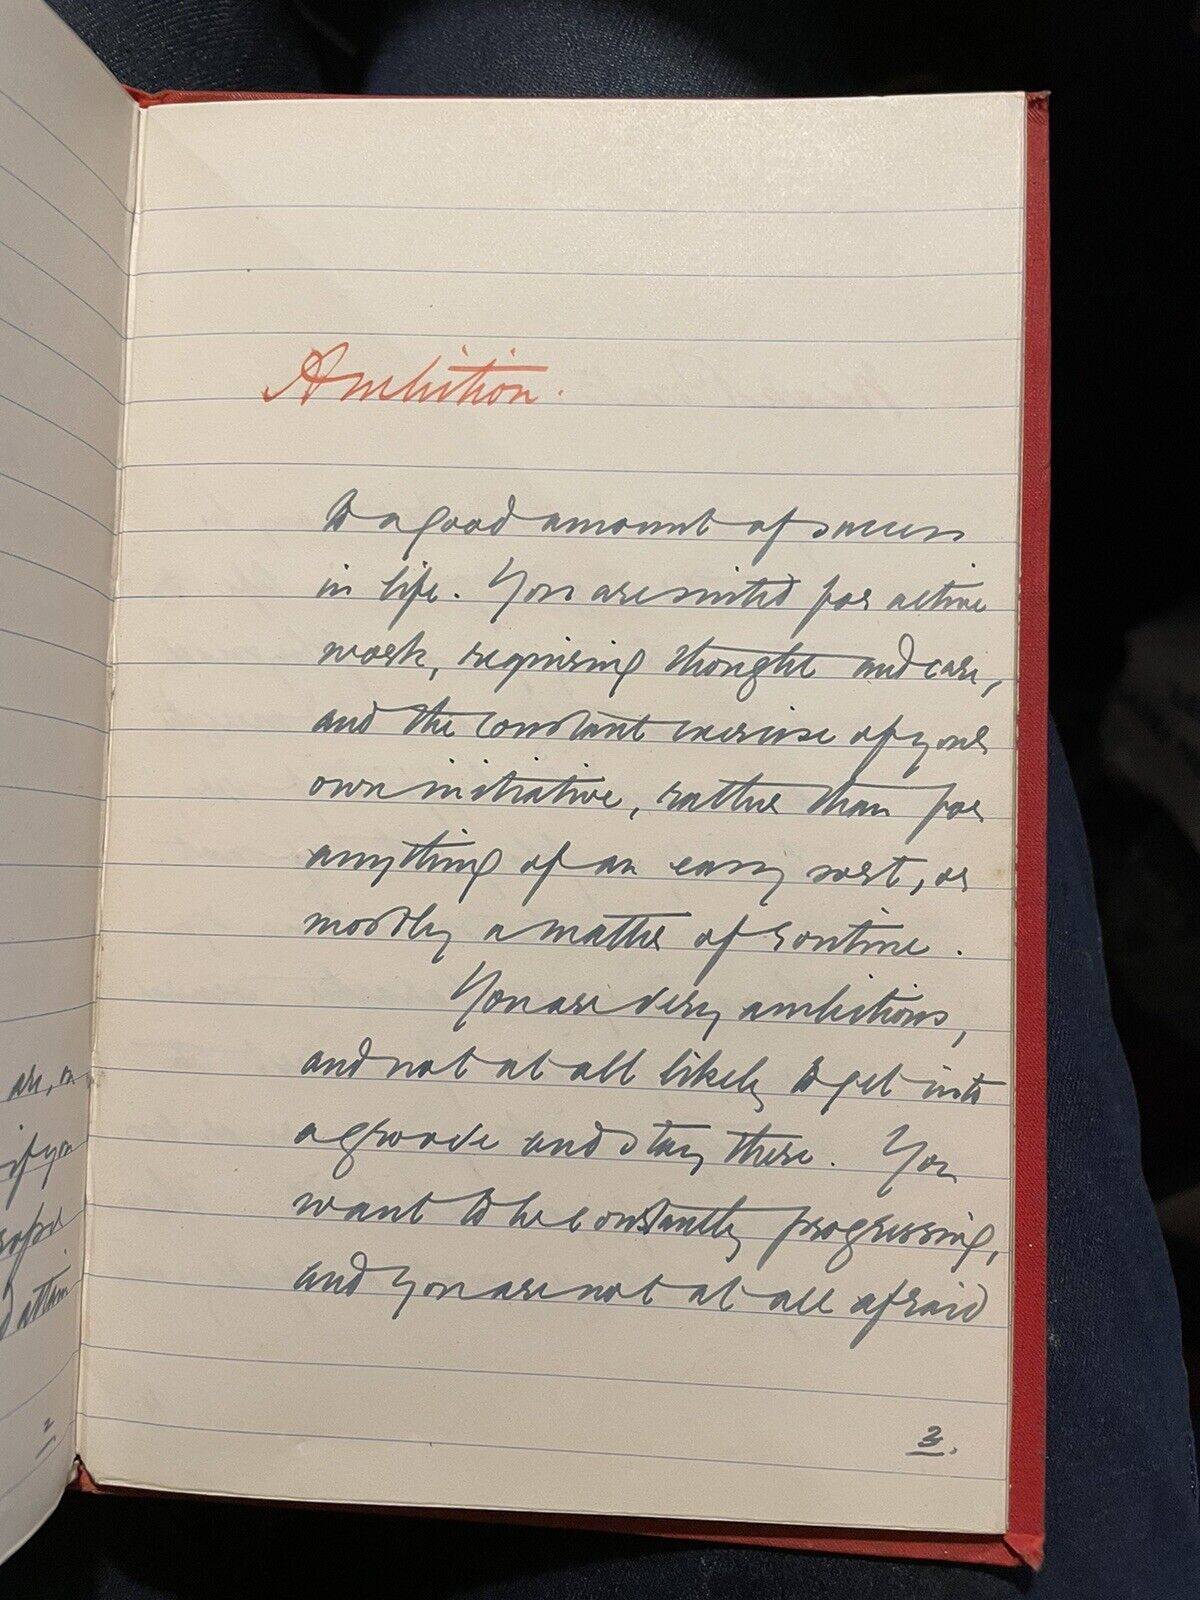 are, or
if you
d attain
2
Ambition.
to a good amount of success
in life. You are suited for active
work, requiring thought and care,
and the constant exercise of your
own initiative, rather than for
anything of an easy sort, or
mostly a matter of routine.
You are very ambitious,
and not at all likely to get into
a groove and stay there. You
want to be constantly progressing,
and you are not at all afraid
3.